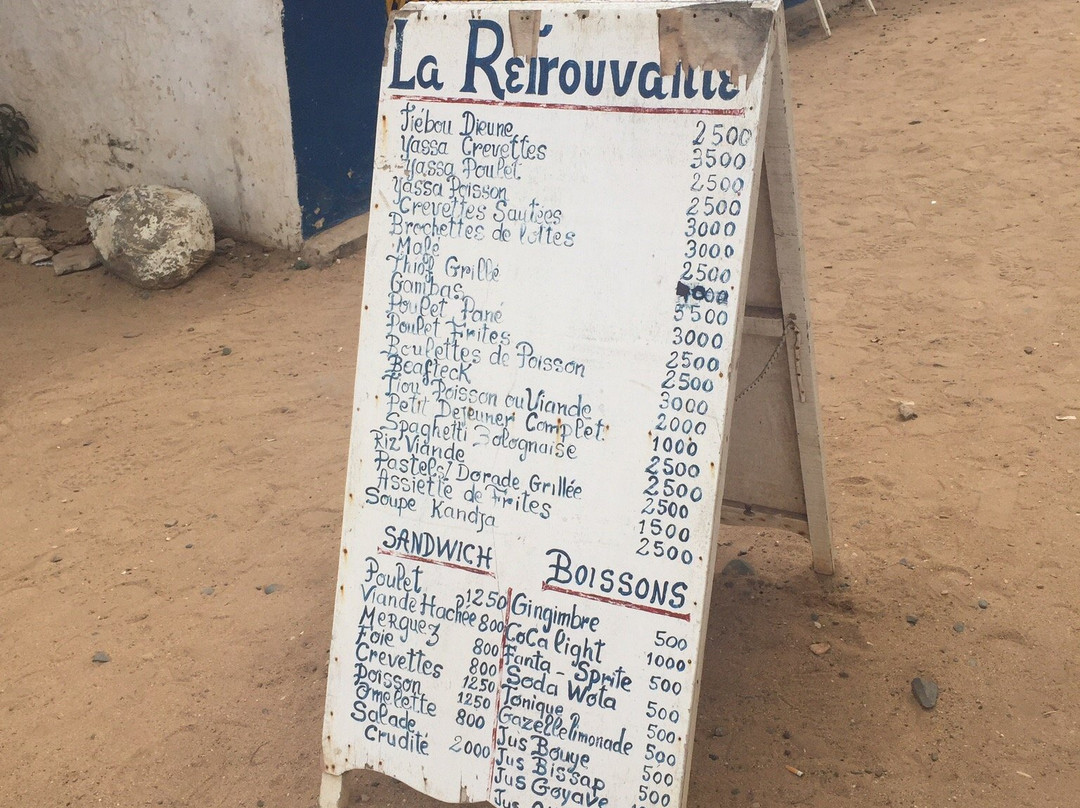 La Retrouvaille
Tiébou Dieune 2500
Yassa Crevettes 3500
Yassa Poulet 2500
Yassa Poisson 2500
Crevettes Sautées 3000
Brochettes de lottes 3000
Mafé 2500
Thiof Grillé
Gambas 3500
Poulet Pané 3000
Poulet Frites 2500
Boulettes de Poisson 2500
Beafteck 3000
Tiou Poisson ou Viande 2000
Petit Dejeuner Complet 1000
Spaghetti Bolognaise 2500
Riz Viande 2500
Pastels/Dorade Grillée 2500
Assiette de Frites 1500
Soupe Kandja 2500
SANDWICH
Poulet 1250
Viande Hachée 800
Merguez 800
Foie 800
Crevettes 1250
Poisson 1250
Omelette 800
Salade
Crudité 2000
BOISSONS
Gingimbre 500
CoCa light 1000
Fanta - Sprite 500
Soda Wota 500
Tonique 500
Gazelle limonade 500
Jus Bouye 500
Jus Bissap 500
Jus Goyave
Jus